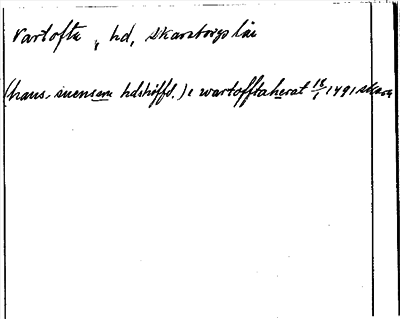 Vartofta, hd, Skaraborgs län
(hans. suensom hdshöffd.) i wartofftaherat 18/1 1491 Skara